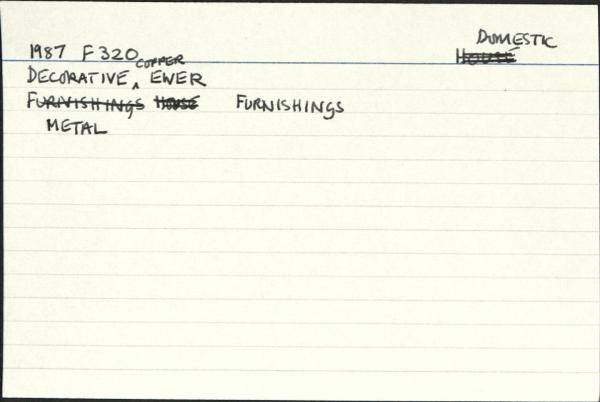 1987 F320 DOMESTIC
HOUSE
DECORATIVE COPPER EWER
FURNISHINGS HOUSE FURNISHINGS
METAL